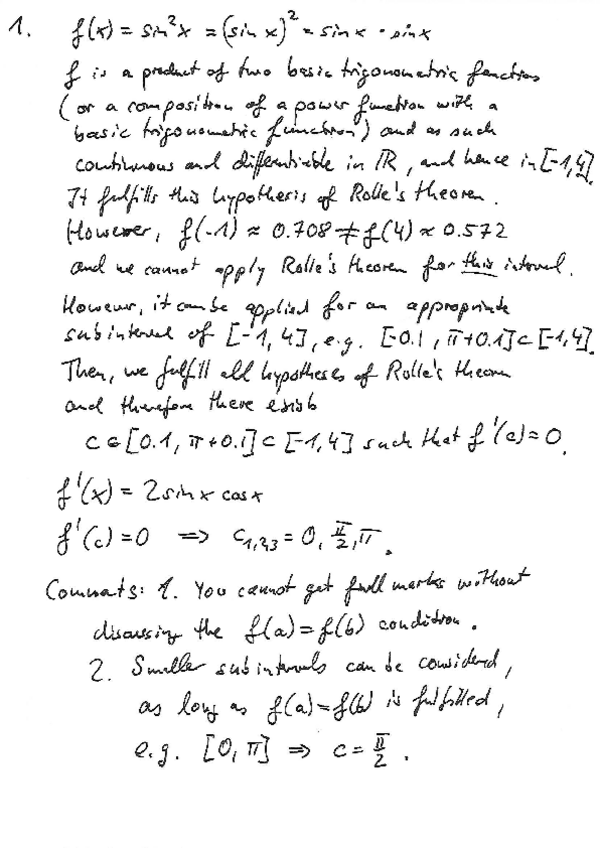 1. f(x) = sin²x = (sin x)² = sin x · sin x
f is a product of two basic trigonometric functions
(or a composition of a power function with a
basic trigonometric function) and as such
continuous and differentiable in ℝ, and hence in [-1,4].
It fulfills this hypothesis of Rolle's theorem.
However, f(-1) ≈ 0.708 ≠ f(4) ≈ 0.572
and we cannot apply Rolle's theorem for this interval.
However, it can be applied for an appropriate
subinterval of [-1,4], e.g. [-0.1, π+0.1] ⊂ [-1,4].
Then, we fulfill all hypotheses of Rolle's theorem
and therefore there exists
c ∈ [0.1, π+0.1] ⊂ [-1,4] such that f'(c)=0.
f'(x) = 2 sin x cos x
f'(c) = 0 ⇒ c₁,₂,₃ = 0, π/2, π.
Comments: 1. You cannot get full marks without
discussing the f(a) = f(b) condition.
2. Smaller subintervals can be considered,
as long as f(a)=f(b) is fulfilled,
e.g. [0, π] ⇒ c = π/2.